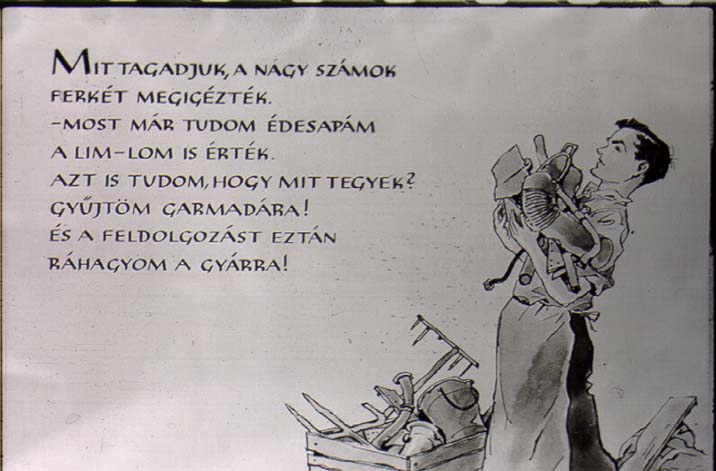 MIT TAGADJUK, A NAGY SZÁMOK
FERKÉT MEGIGÉZTÉK.
-MOST MÁR TUDOM ÉDESAPÁM
A LIM-LOM IS ÉRTÉK.
AZT IS TUDOM, HOGY MIT TEGYEK?
GYŰJTÖM GARMADÁRA!
ÉS A FELDOLGOZÁST EZTÁN
RÁHAGYOM A GYÁRRA!